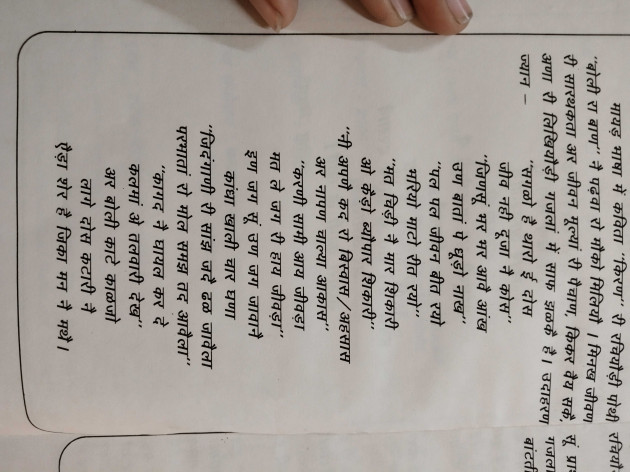 मायड़ भाषा में कविता "किरण" री रचियोड़ी पोथी
"बोली रा बाण" नै पढ़बा रो मौको मिलियो। मिनख जीवण
री सारथकता अर जीवन मूल्यां री पैचाण, किकर वैय सके,
अणा री लिखियोड़ी गजलां में साफ झळके है। उदाहरण
ज्यान –
"सगळो है थारो हूँ दोस
जीव नहीं दूजा नै कोस"
"जिणसूं मर मर आवै आंख
उण बातां पे धूड़ो नाख"
"पल पल जीवन बीत रयो
मरियां माटी रीत रयो"
"मत चिड़ी नै मार शिकारी
ओ कैड़ो ब्यौपार शिकारी"
"नी अपणै कद रो विस्वास/अहसास
अर नापण चाल्या आकास"
"करणी सामी आय जीवड़ा
मत ले जग री हाय जीवड़ा"
इण जग सूं उण जग जावानै
कांधा खाली चार घणा
"जिंदगाणी री सांझ जटै ढळ जावेला
परभातां रो मोल समझ तद आवैला"
"कागद नै घायल कर दे
कलमां ओ तलवारी देख
अर बोली काटै काळजो
लागै ठोस कटारी नै
ऐड़ा शेर है जिका मन नै मथै।
रचियो
सूं प्र
गजल
बांटत